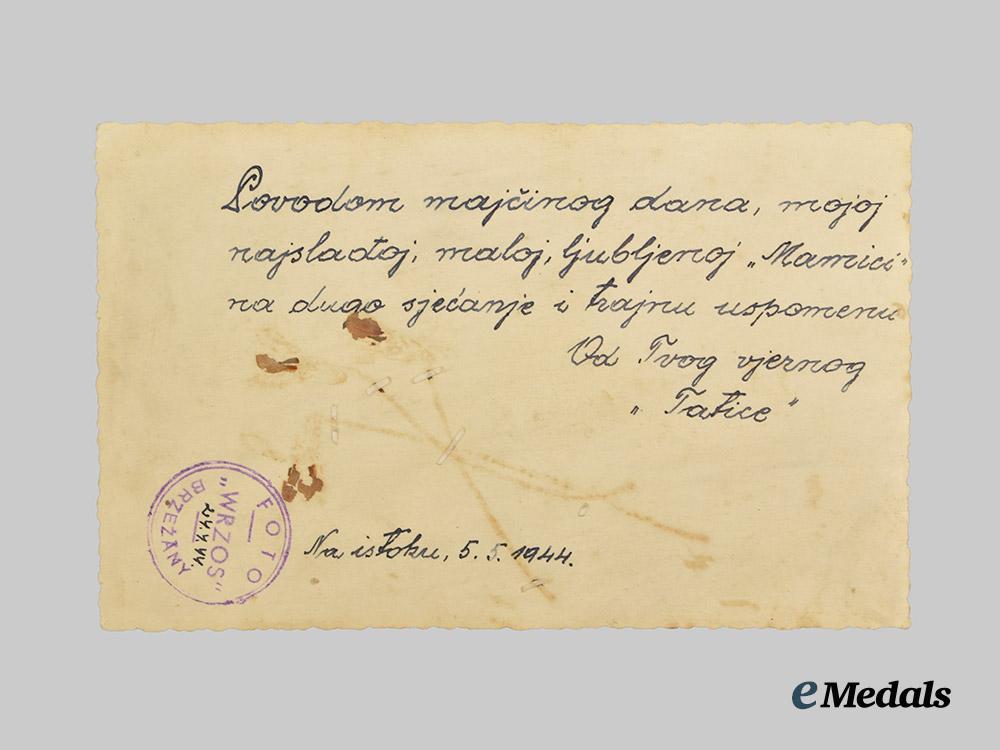 Povodom majčinog dana, mojoj
najslađoj, maloj, ljubljenoj „Mamici"
na dugo sjećanje i trajnu uspomenu
Od Tvog vjernog
„Tatice"
FOTO
„WRZOS"
BRZEŻANY
Na istoku, 5. 5. 1944.
eMedals